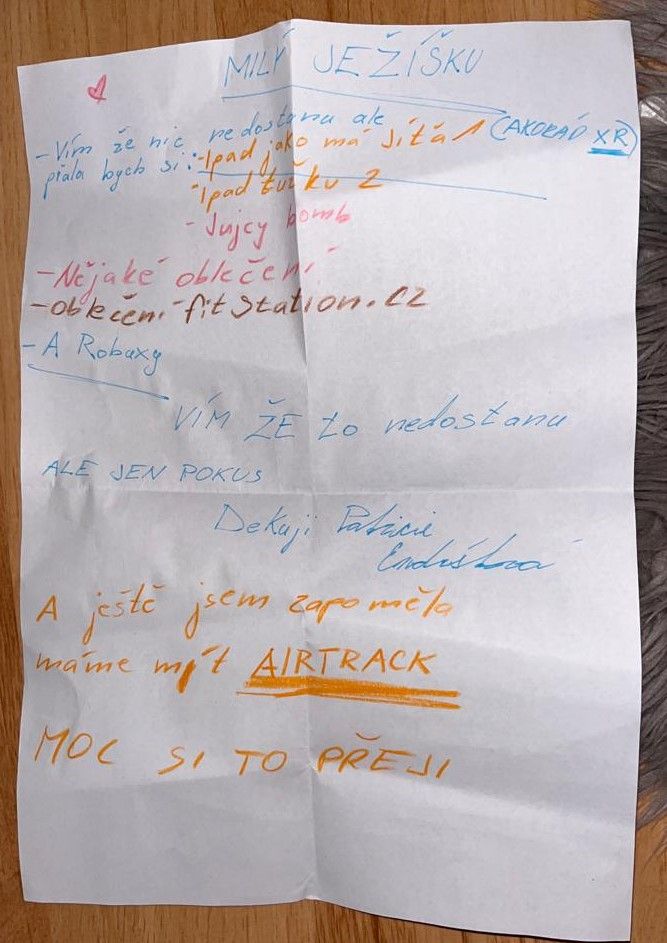 MILÝ JEŽÍŠKU
-Vím že nic nedostanu ale
přála bych si:-Ipad jako má Jíťa 1 (AKORÁD XR)
-Ipad tužku 2
-Jujcy bomb
-Nějaké oblečení
-oblečení fitstation.cz
-A Robuxy
VÍM ŽE to nedostanu
ALE JEN POKUS
Dekuji Patricie
A ještě jsem zapoměla
máme mýt AIRTRACK
MOC SI TO PŘEJI